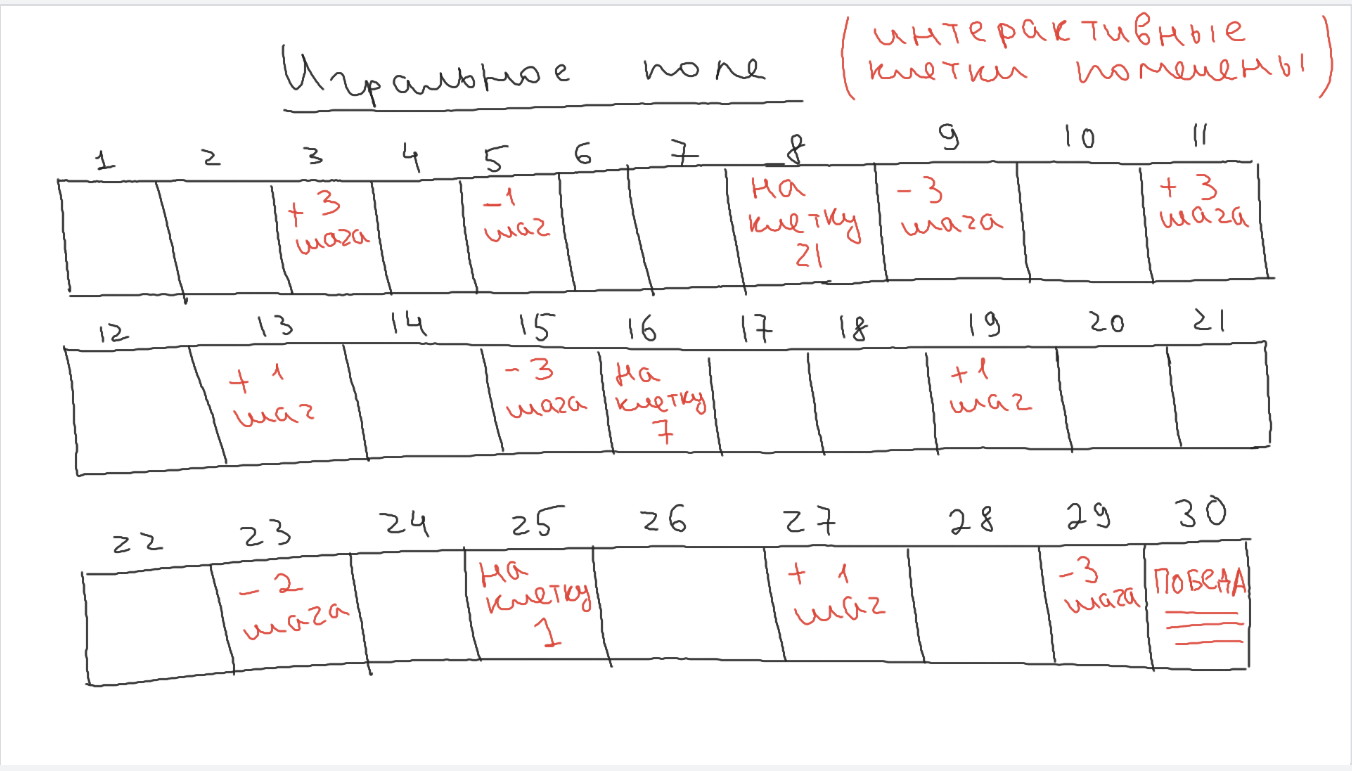 Игральное поле
(интерактивные
клетки помечены)
1 2 3 4 5 6 7 8 9 10 11
+ 3
шага
- 1
шаг
на
клетку
21
- 3
шага
+ 3
шага
12 13 14 15 16 17 18 19 20 21
+ 1
шаг
- 3
шага
на
клетку
7
+1
шаг
22 23 24 25 26 27 28 29 30
- 2
шага
на
клетку
1
+ 1
шаг
-3
шага
ПОБЕДА